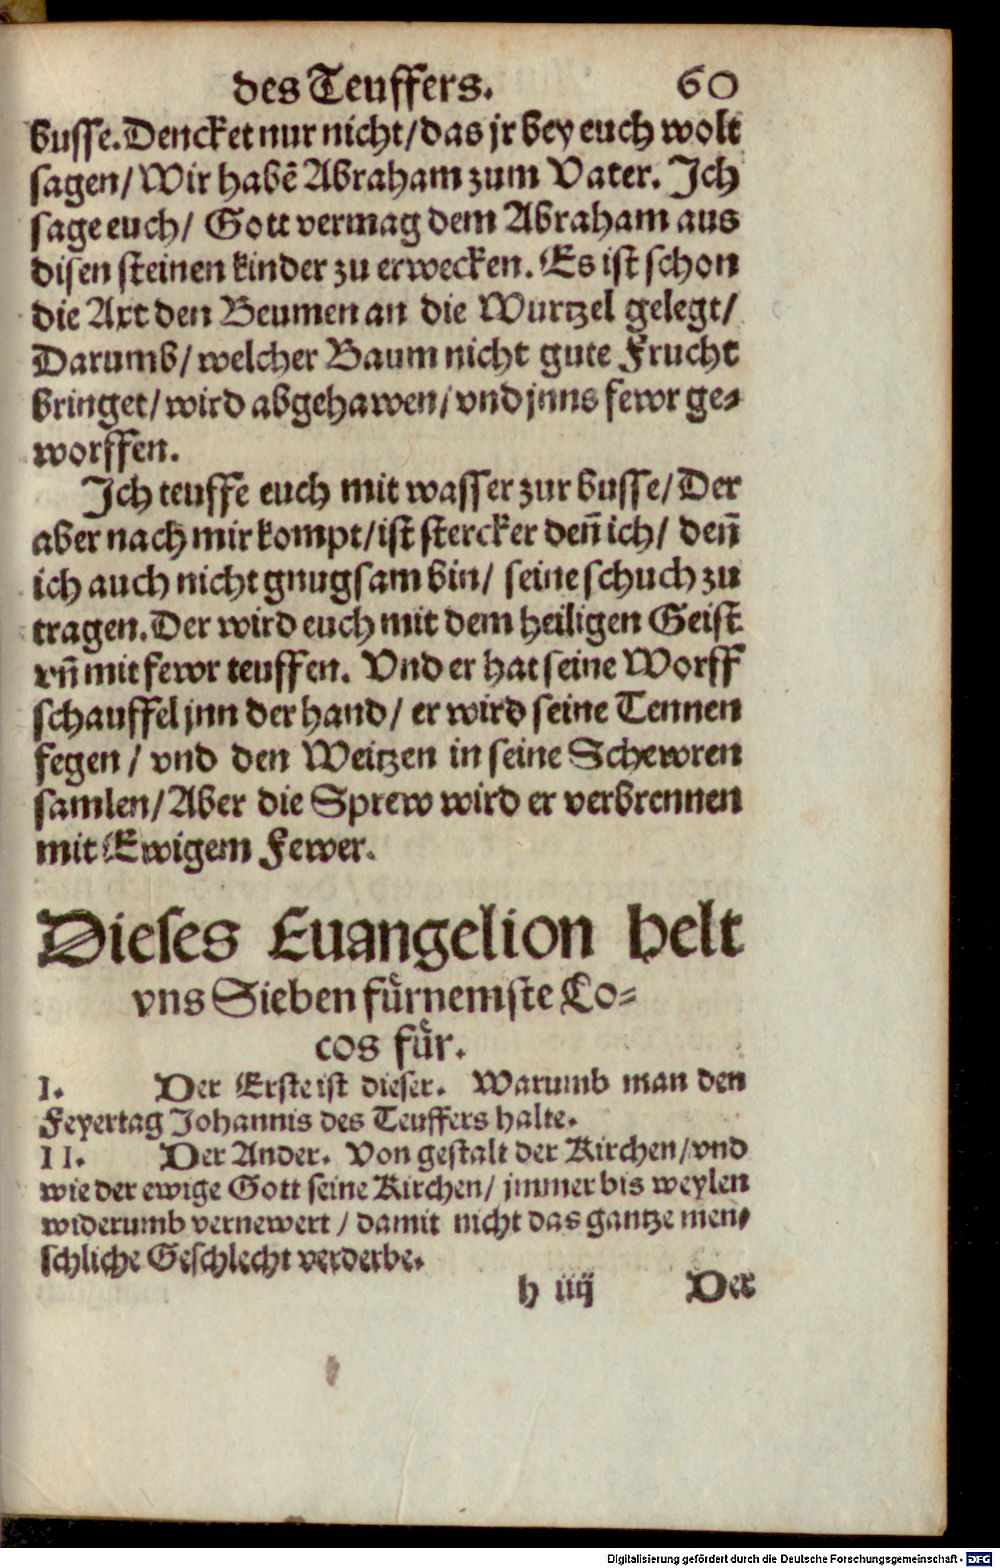 des Teuffers. 60
busse. Dencket nur nicht/ das jr bey euch wolt
sagen/ Wir habē Abraham zum Vater. Ich
sage euch/ Gott vermag dem Abraham aus
disen steinen kinder zu erwecken. Es ist schon
die Axt den Beumen an die Wurtzel gelegt/
Darumb/ welcher Baum nicht gute Frucht
bringet/ wird abgehawen/ vnd jnns fewr ge-
worffen.
Ich teuffe euch mit wasser zur busse/ Der
aber nach mir kompt/ ist stercker deñ ich/ deñ
ich auch nicht gnugsam bin/ seine schuch zu
tragen. Der wird euch mit dem heiligen Geist
vñ mit fewr teuffen. Vnd er hat seine Worff
schauffel jnn der hand/ er wird seine Tennen
fegen/ vnd den Weitzen in seine Schewren
samlen/ Aber die Sprew wird er verbrennen
mit Ewigem Fewer.
Dieses Euangelion helt
vns Sieben fuͤrnemste Lo-
cos fuͤr.
I. Der Erste ist dieser. Warumb man den
Feyertag Johannis des Teuffers halte.
II. Der Ander. Von gestalt der Kirchen/ vnd
wie der ewige Gott seine Kirchen/ jmmer bis weylen
widerumb vernewert/ damit nicht das gantze men-
schliche Geschlecht verderbe.
h iiij Der
Digitalisierung gefördert durch die Deutsche Forschungsgemeinschaft - DFG